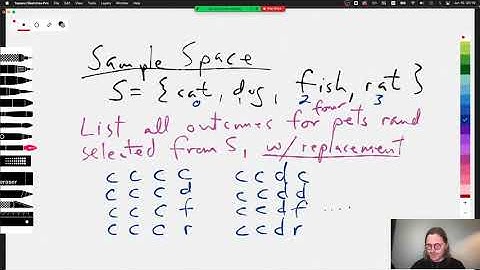 Sample Space
S = { cat, dog, fish, rat }
0 2 3
four
List all outcomes for pets rand
selected from S, w/ replacement
c c c c c c d c
c c c d c c d d
c c c f c c d f ....
c c c r c c d r